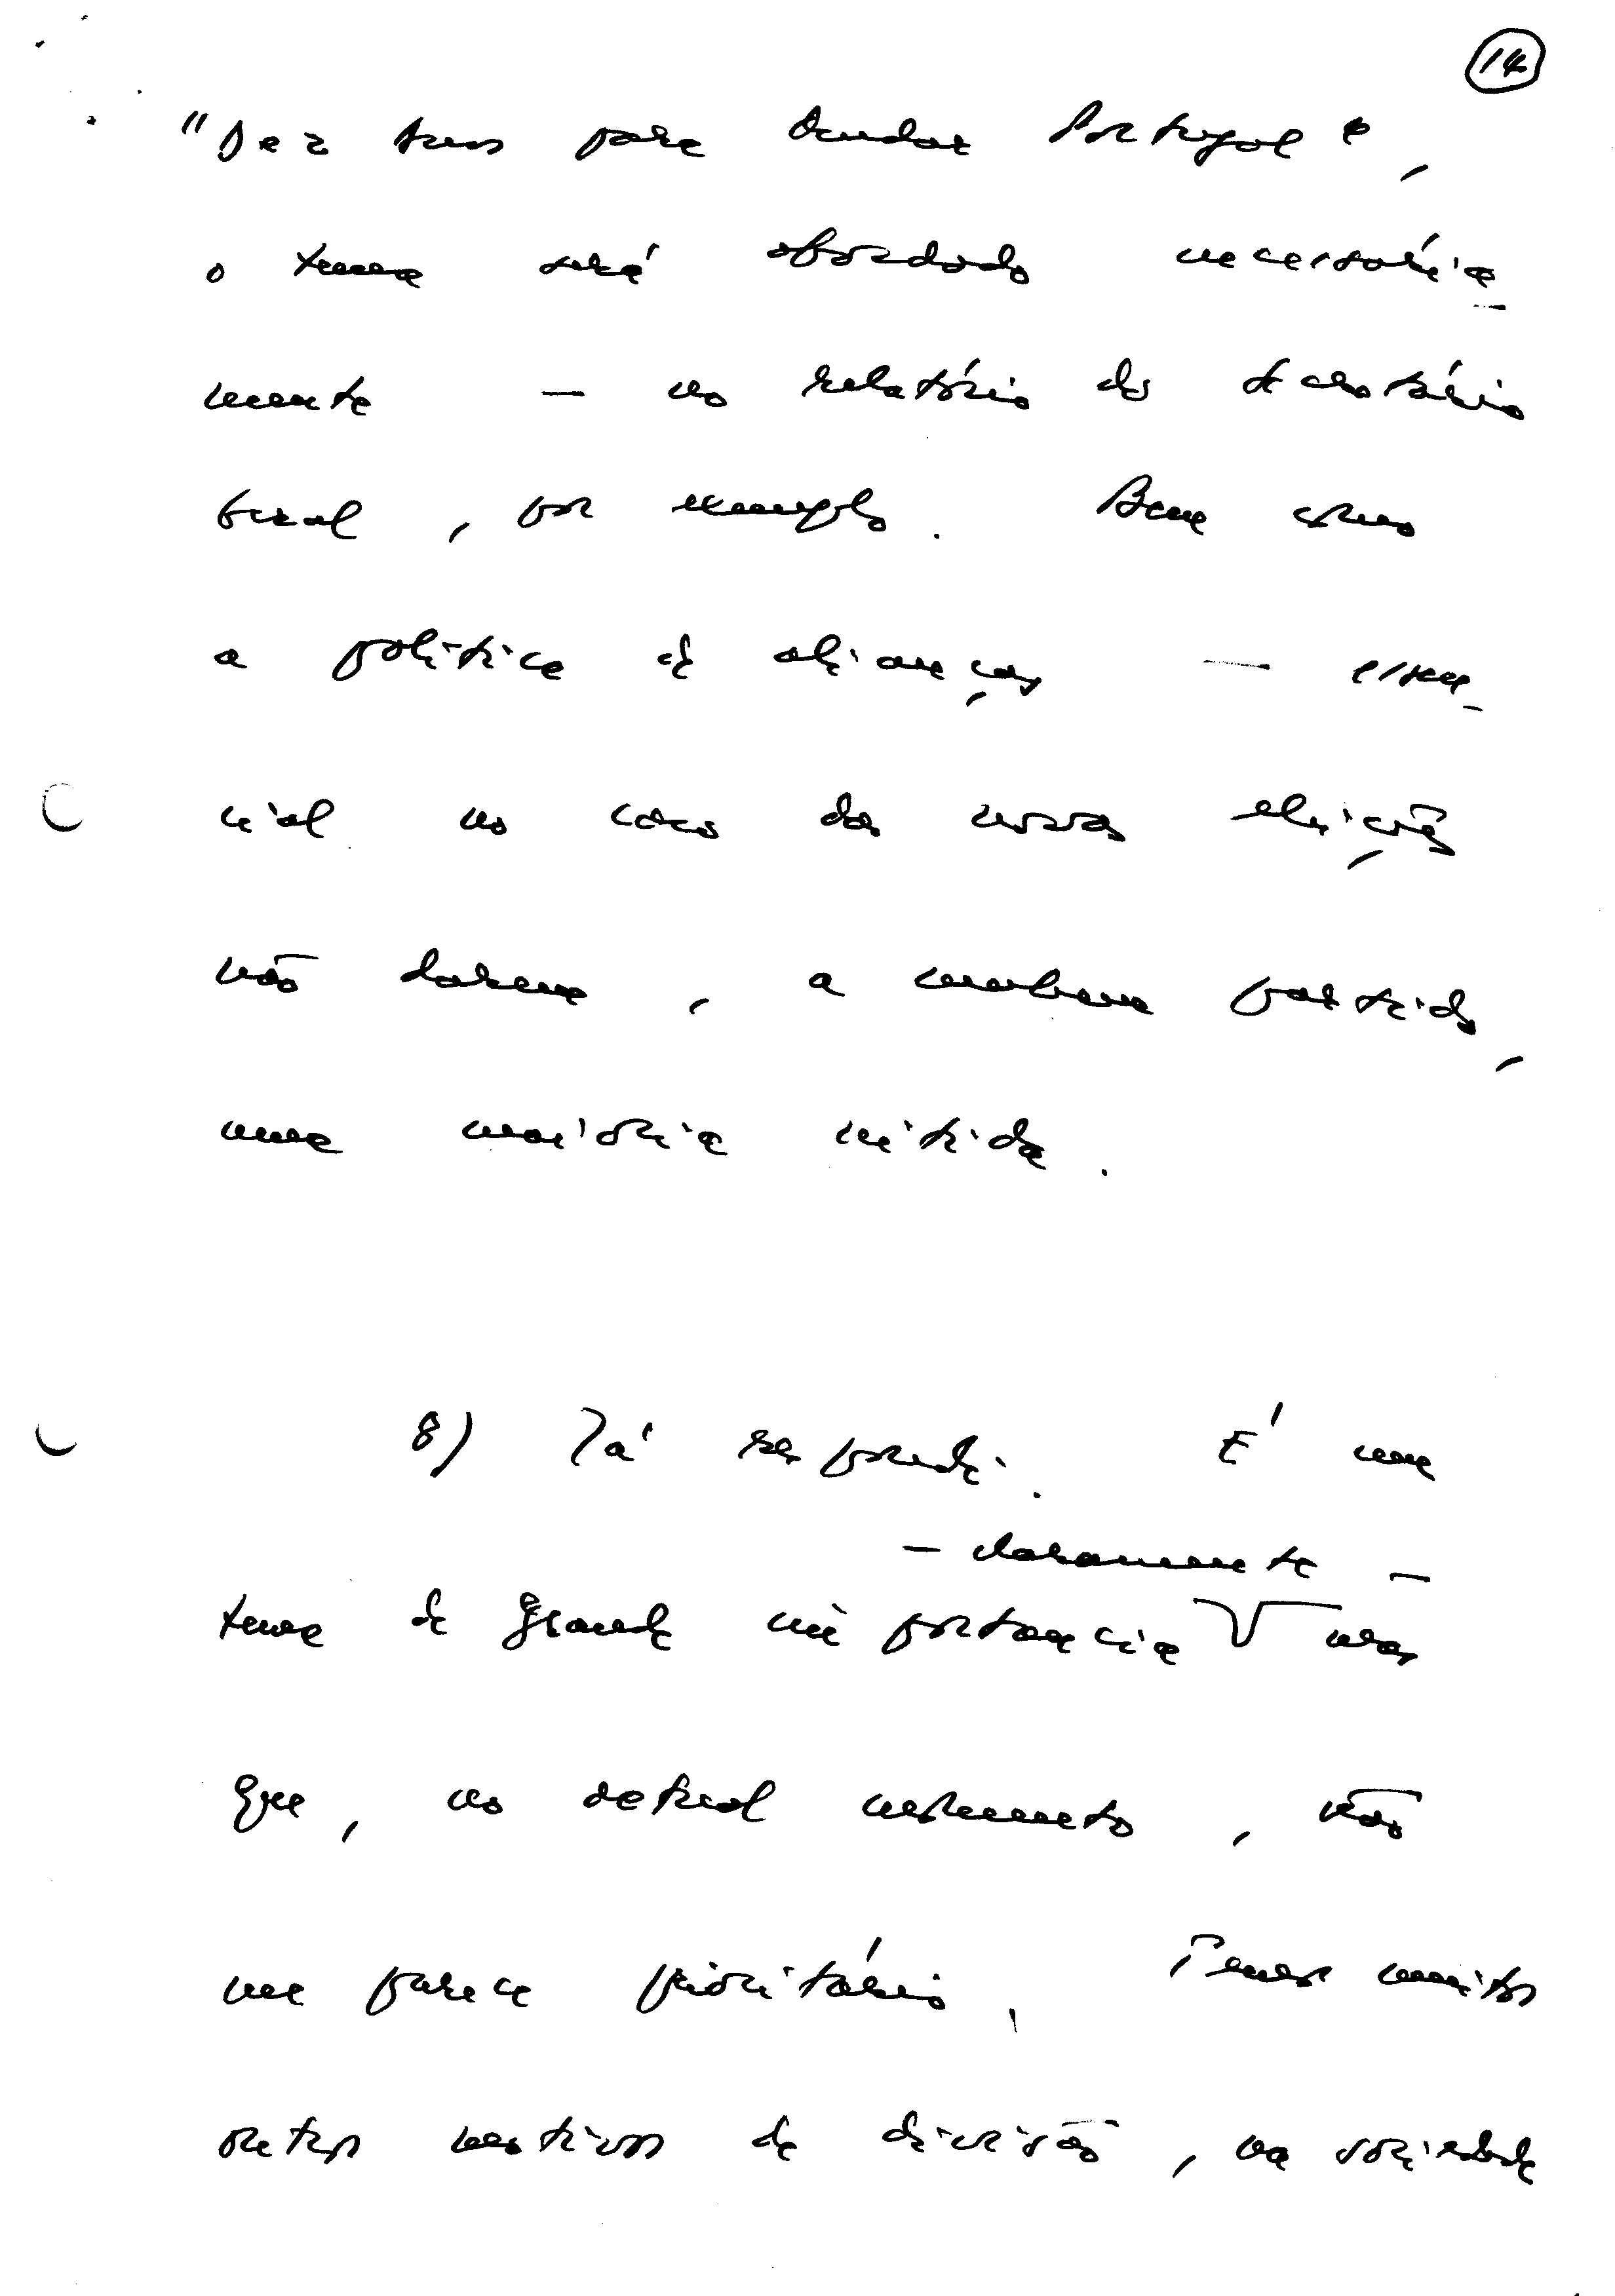 14
"Dez anos para mudar Portugal",
o tema será abordado necessaria-
mente — no relatório do Secretário
Geral, por exemplo. Bem como
a política de alianças — essen-
cial no caso das novas eleições
não darem, a nenhum partido,
uma maioria nítida.
8) Já respondi. É um
— claramente —
tema de grande importância mas
que, no actual momento, não
me parece prioritário. Temos muitos
outros motivos de divisão, na sociedade